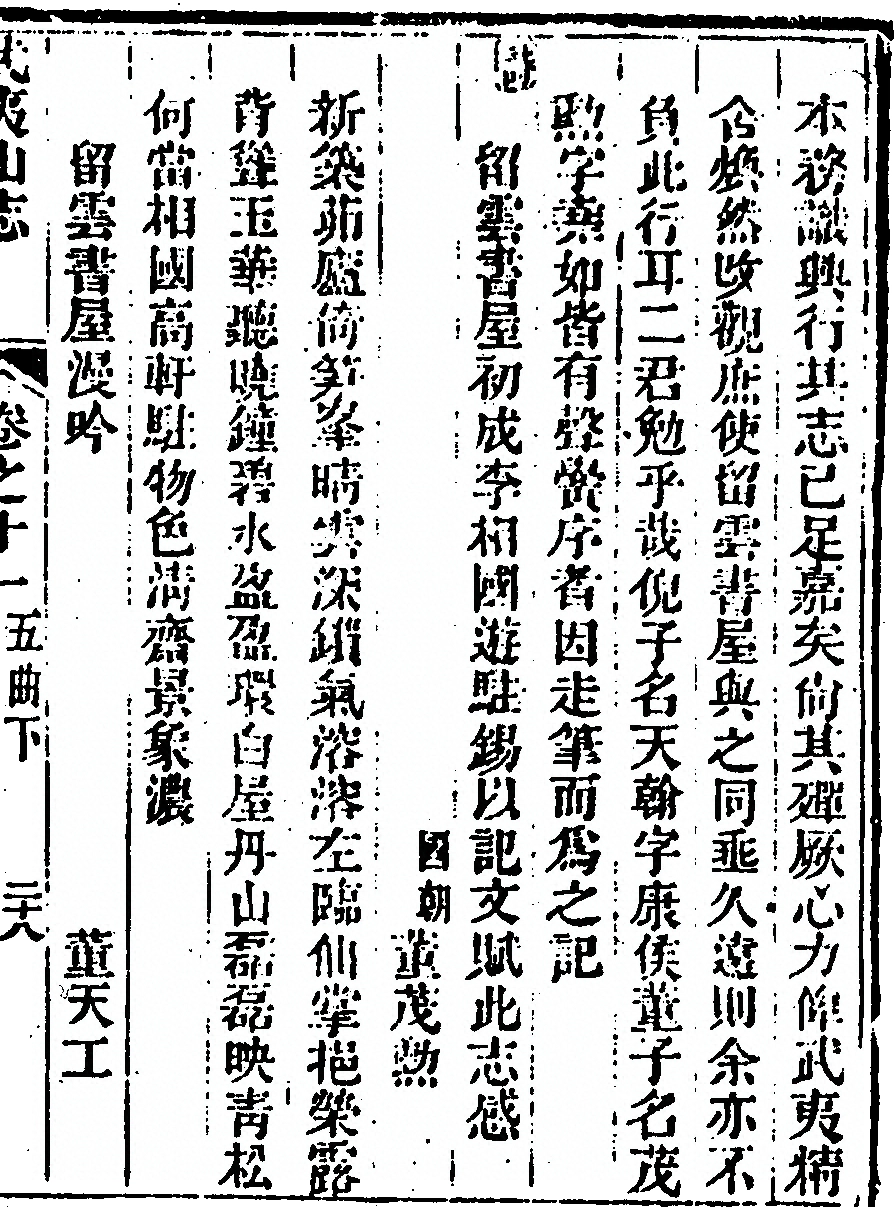 本務讓興行其志已足嘉矣尚其殫厥心力俾武夷精
舍煥然改觀庶使留雲書屋與之同垂久遠則余亦不
負此行耳二君勉乎哉倪子名天翰字康侯董子名茂
勲字無如皆有聲黌序者因走筆而為之記
詩
留雲書屋初成李相國遊駐錫以記文賦此志感
國朝 董茂勲
新築茆廬倚笋峯晴雲深鎖氣溶溶左臨仙掌挹榮露
背聳玉華聽曉鐘碧水盈盈環白屋丹山磊磊映青松
何當相國高軒駐物色清齋景象濃
留雲書屋漫吟 董天工
武夷山志 卷之十一 五曲下 二十八